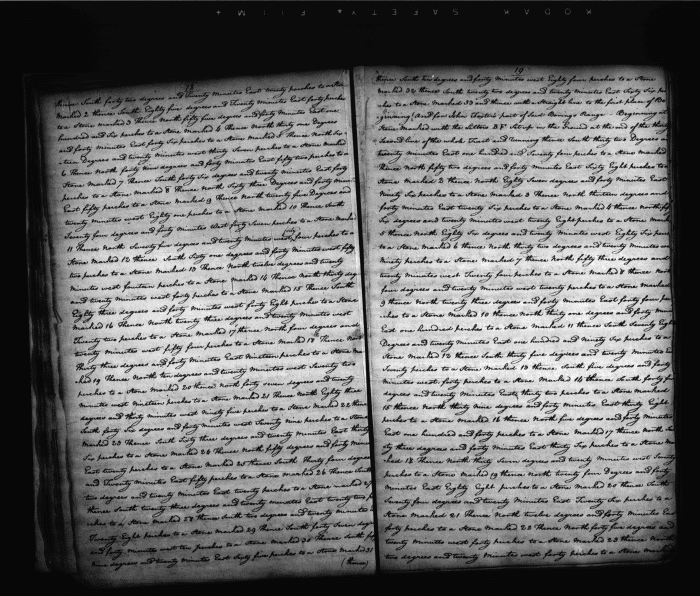 KODAK SAFETY ▲ FILM +
18
thence South forty two degrees and twenty minutes East ninety perches to a Stone
marked 2 thence South Eighty five degrees and Twenty minutes East forty perches
to a Stone marked 3 thence North fifty degrees and minutes East one
hundred and Six perches to a Stone marked 4 thence North thirty one Degrees
and forty minutes East forty Six perches to a Stone marked 5 thence North Six
teen Degrees and twenty minutes west thirty Seven perches to a Stone
6 thence North forty and forty minutes East fifty two perches to a
Stone marked 7 thence South forty Six degrees and twenty minutes East forty
perches to a Stone marked 8 thence North Sixty three Degrees and forty minutes
East fifty perches to a Stone marked 9 thence North twenty four Degrees and
twenty minutes west Eighty one perches to a Stone marked 10 thence South
Seventy four degrees and forty minutes West forty Seven perches to a Stone marked
11 thence North Seventy four degrees and twenty minutes west four perches to a
Stone marked 12 thence South Sixty one degrees and forty minutes west fifty
two perches to a Stone marked 13 thence North twelve degrees and twenty
minutes west fourteen perches to a Stone marked 14 thence North thirty deg
and twenty minutes west forty perches to a Stone marked 15 thence South
Eighty three degrees and forty minutes west forty Eight perches to a Stone
marked 16 thence North twenty three degrees and twenty minutes west
Twenty two perches to a Stone marked 17 thence North forty degrees and
twenty minutes west fifty four perches to a Stone marked 18 thence North
Thirty three degrees and twenty minutes East Nineteen perches to a Stone
ked 19 thence North ten degrees and twenty minutes west Seventy two
perches to a Stone marked 20 thence North forty Seven degrees and twenty
minutes west nineteen perches to a Stone marked 21 thence North Eighty three
degrees and thirty minutes west Ninety five perches to a Stone marked 22 thence
South forty Six degrees and forty minutes west Seventy Nine perches to a Stone
marked 23 thence South Sixty three degrees and twenty minutes East thirty
Six perches to a Stone marked 24 thence North fifty degrees and forty minutes
East twenty perches to a Stone marked 25 thence South Thirty four degrees
and Twenty minutes East fifty perches to a Stone marked 26 thence South
two degrees and twenty minutes East twenty perches to a Stone marked 27
thence South twenty three degrees and twenty minutes East twenty two per
ches to a Stone marked 28 thence South twelve degrees and forty minutes East
Twenty Eight perches to a Stone marked 29 thence South forty Seven deg
and forty minutes west ten perches to a Stone marked 30 thence South fifty
nine degrees and twenty minutes East Sixty five perches to a Stone marked 31
(thence)
19
thence South ten degrees and forty minutes west Eighty four perches to a Stone
marked 32 thence South twenty two degrees and twenty minutes East Sixty Six per
ches to a Stone marked 33 and thence with a Straight line to the first place of Be
ginning (And four other Tracts part of said Boring's Range Beginning
Stone marked with the letters B.F. Set up in the Ground at the end of the thirty
Second line of the whole Tract and Running thence South thirty two Degrees
twenty minutes East one hundred and Seventy four perches to a Stone marked
thence North fifty two degrees and forty minutes East Sixty Eight perches to
a Stone marked 2 thence North Eighty Seven degrees and forty minutes East
Ninety Six perches to a Stone marked 3 thence North thirteen degrees and
forty minutes East twenty Six perches to a Stone marked 4 thence North fifty
Six degrees and twenty minutes west twenty Eight perches to a Stone mark
5 thence North Eighty Six degrees and twenty minutes west Eighty Six perches
to a Stone marked 6 thence North thirty two degrees and twenty minutes west
Ninety perches to a Stone marked 7 thence North fifty three degrees and twenty
minutes west Twenty four perches to a Stone marked 8 thence North
four degrees and twenty minutes west twenty perches to a Stone marked
9 thence North twenty three degrees and forty minutes East forty four per
ches to a Stone marked 10 thence North thirty one degrees and forty minutes
East one hundred perches to a Stone marked 11 thence South Seventy Eight
Degrees and twenty minutes East one hundred and ninety Six perches to a
Stone marked 12 thence South thirty five degrees and twenty minutes East
Seventy perches to a Stone marked 13 thence South five degrees and forty
minutes west forty perches to a Stone marked 14 thence South forty five
degrees and twenty minutes East thirty two perches to a Stone marked
15 thence North thirty nine degrees and forty minutes East Eighty four
perches to a Stone marked 16 thence North five degrees and forty minutes
East one hundred and forty perches to a Stone marked 17 thence North Six
ty three degrees and forty minutes East thirty Six perches to a Stone mar
ked 18 thence North thirty Seven degrees and twenty minutes west Seventy
perches to a Stone marked 19 thence North twenty four Degrees and forty
minutes East Eighty Eight perches to a Stone marked 20 thence South
Seventy four degrees and twenty minutes East Twenty Six perches to a
Stone marked 21 thence North twelve degrees and twenty minutes East
forty perches to a Stone marked 22 thence North forty four degrees and
twenty minutes west forty perches to a Stone marked 23 thence North
two degrees and twenty minutes west twenty perches to a Stone marked